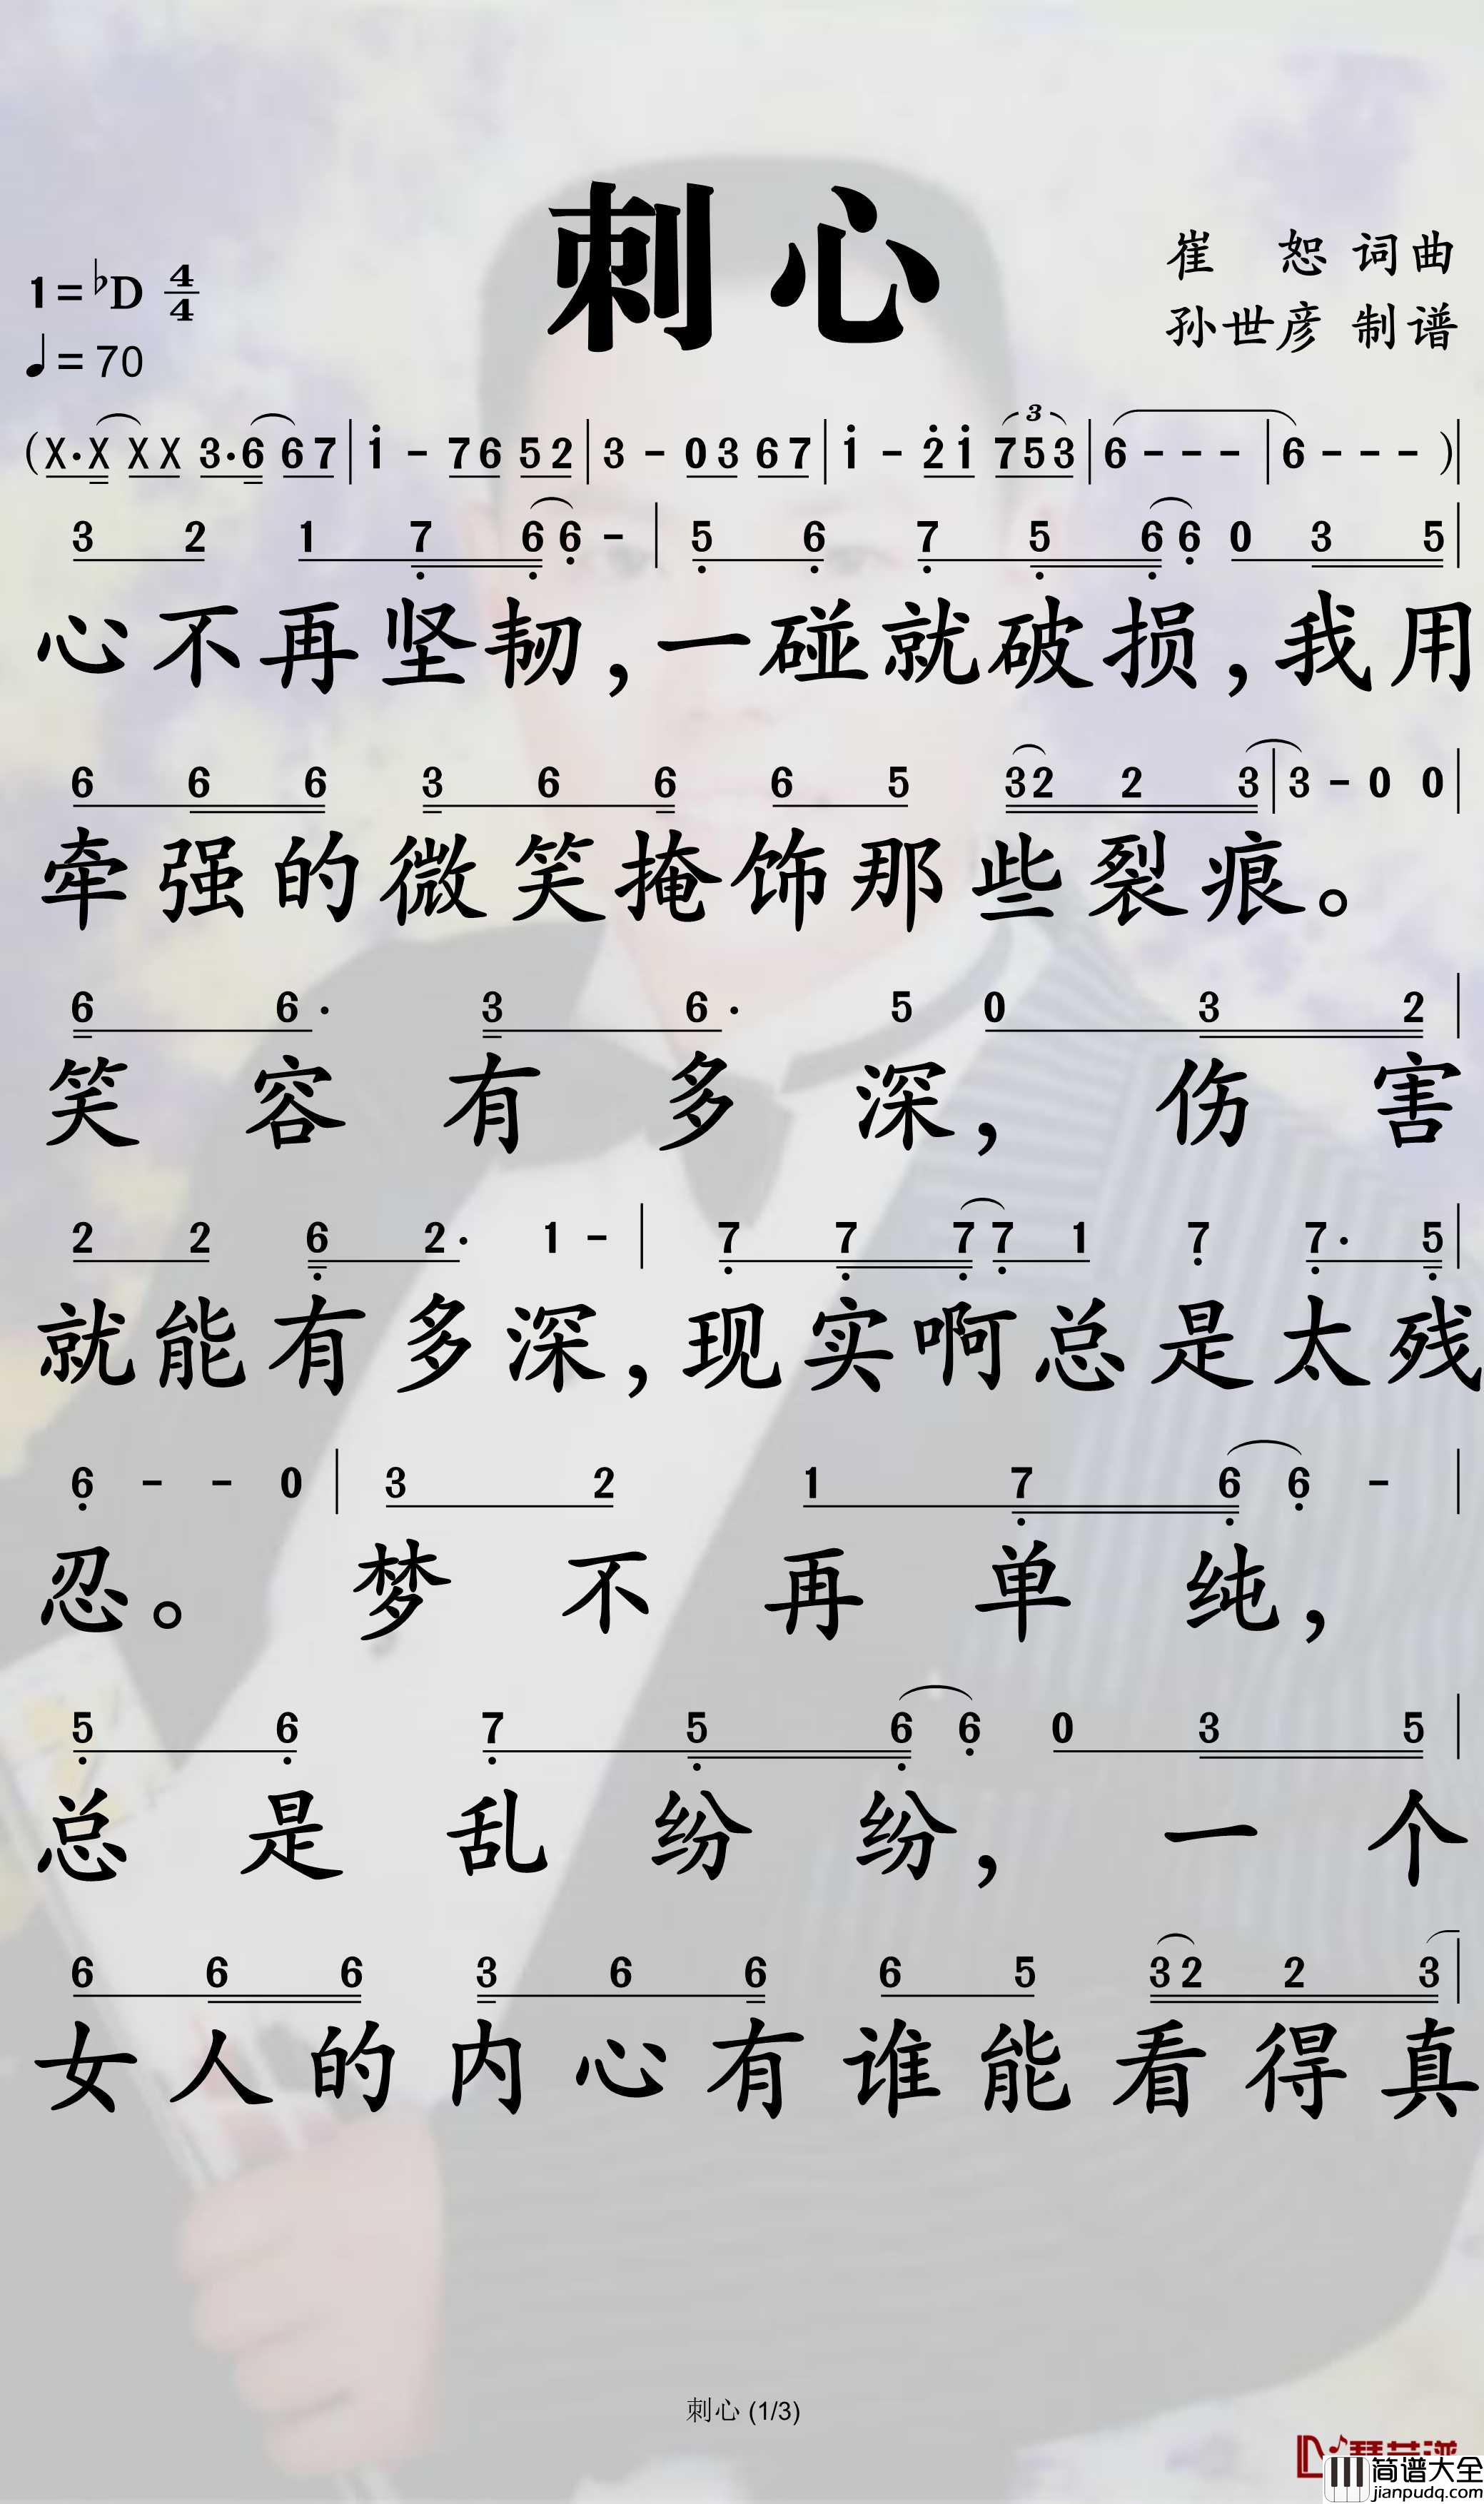 刺心
崔 恕 词曲
孙世彦 制谱
1=♭D 4/4
♩=70
(X·X XX 3·6 67|i - 76 52|3 - 03 67|i - 2̇i 753|6 - - -|6 - - - )|
3 2 1 7̣ 6̣ 6̣ - |5̣ 6̣ 7̣ 5̣ 6̣ 6̣ 0 3 5|
心不再坚韧,一碰就破损,我用
6 6 6 3 6 6 6 5 32 2 3|3 - 0 0|
牵强的微笑掩饰那些裂痕。
6 6· 3 6· 5 0 3 2|
笑容有多深,伤害
2 2 6̣ 2· 1 - |7̣ 7̣ 7̣ 7̣ 1 7̣ 7̣· 5̣|
就能有多深,现实啊总是太残
6̣ - - 0|3 2 1 7̣ 6̣ 6̣ - |
忍。梦不再单纯,
5̣ 6̣ 7̣ 5̣ 6̣ 6̣ 0 3 5|
总是乱纷纷,一个
6 6 6 3 6 6 6 5 32 2 3|
女人的内心有谁能看得真
刺心 (1/3)
简谱大全
jianpudq.com